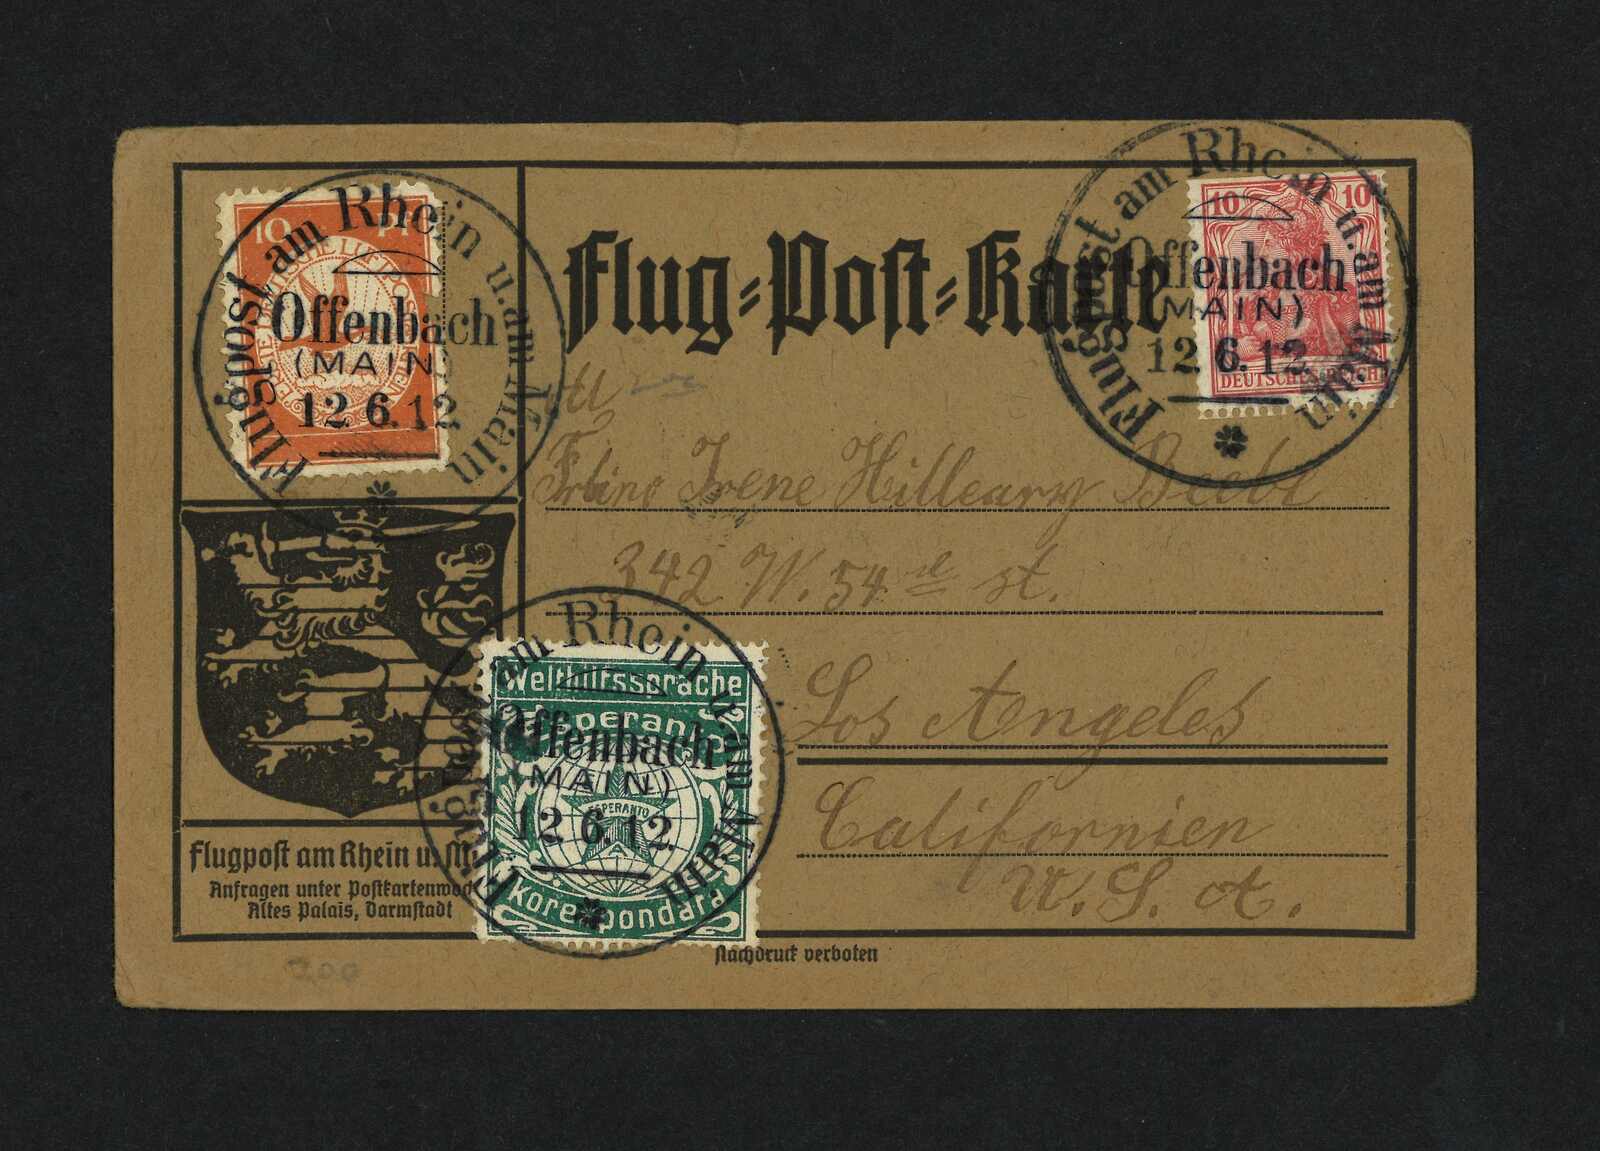 10 Pf
Flugpost am Rhein u. am Main
Offenbach
(MAIN)
12.6.12
Flug=Post=Karte
10 10
DEUTSCHES REICH
Flugpost am Rhein u. am Main
Offenbach
(MAIN)
12.6.12
Irene Hilleary Beebe
342 W. 54 st.
Los Angeles
Californien
U. S. A.
Welthilfssprache
Esperanto
ESPERANTO
Korespondard
Flugpost am Rhein u. am Main
Offenbach
(MAIN)
12.6.12
Flugpost am Rhein u. M
Anfragen unter Postkartenwoc
Altes Palais, Darmstadt
Nachdruck verboten
200